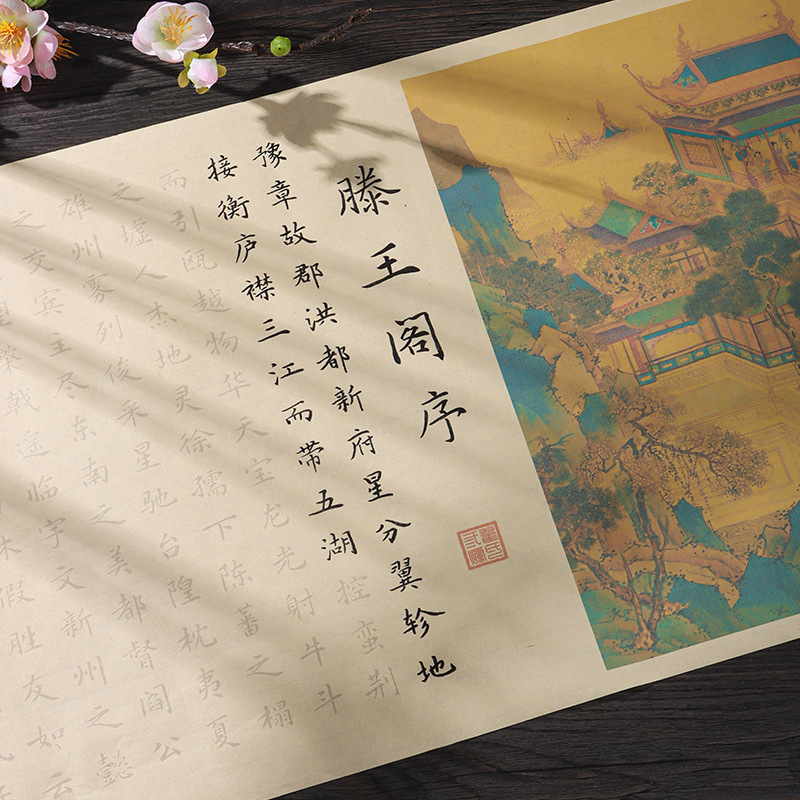 滕王阁序
豫章故郡洪都新府星分翼轸地
接衡庐襟三江而带五湖控蛮荆
而引瓯越物华天宝龙光射牛斗
之墟人杰地灵徐孺下陈蕃之榻
雄州雾列俊采星驰台隍枕夷夏
之交宾主尽东南之美都督阎公
望棨戟遥临宇文新州之懿
休假胜友如云